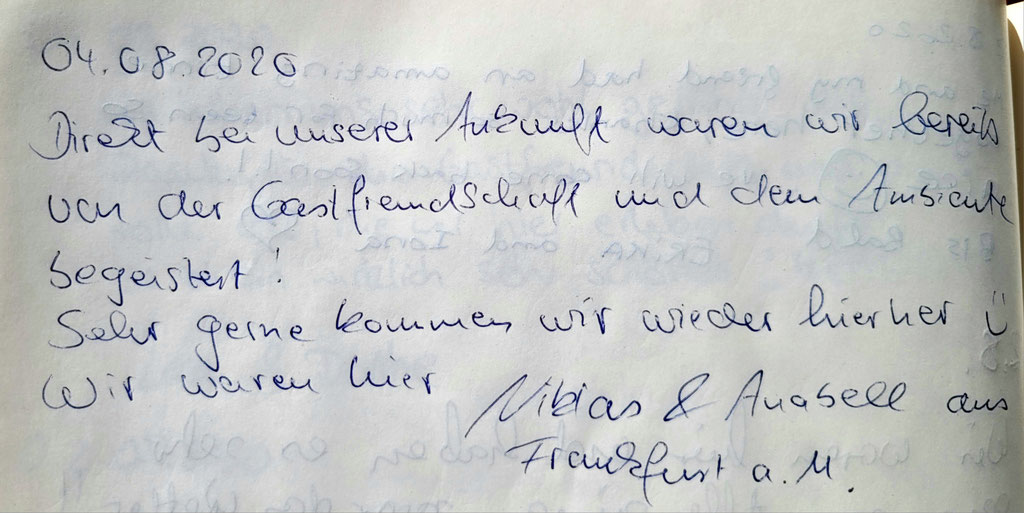 04.08.2020
Direkt bei unserer Ankunft waren wir bereits
von der Gastfreundschaft und dem Ambiente
begeistert!
Sehr gerne kommen wir wieder hierher Ü
Wir waren hier
& Anabell aus
Frankfurt a.M.